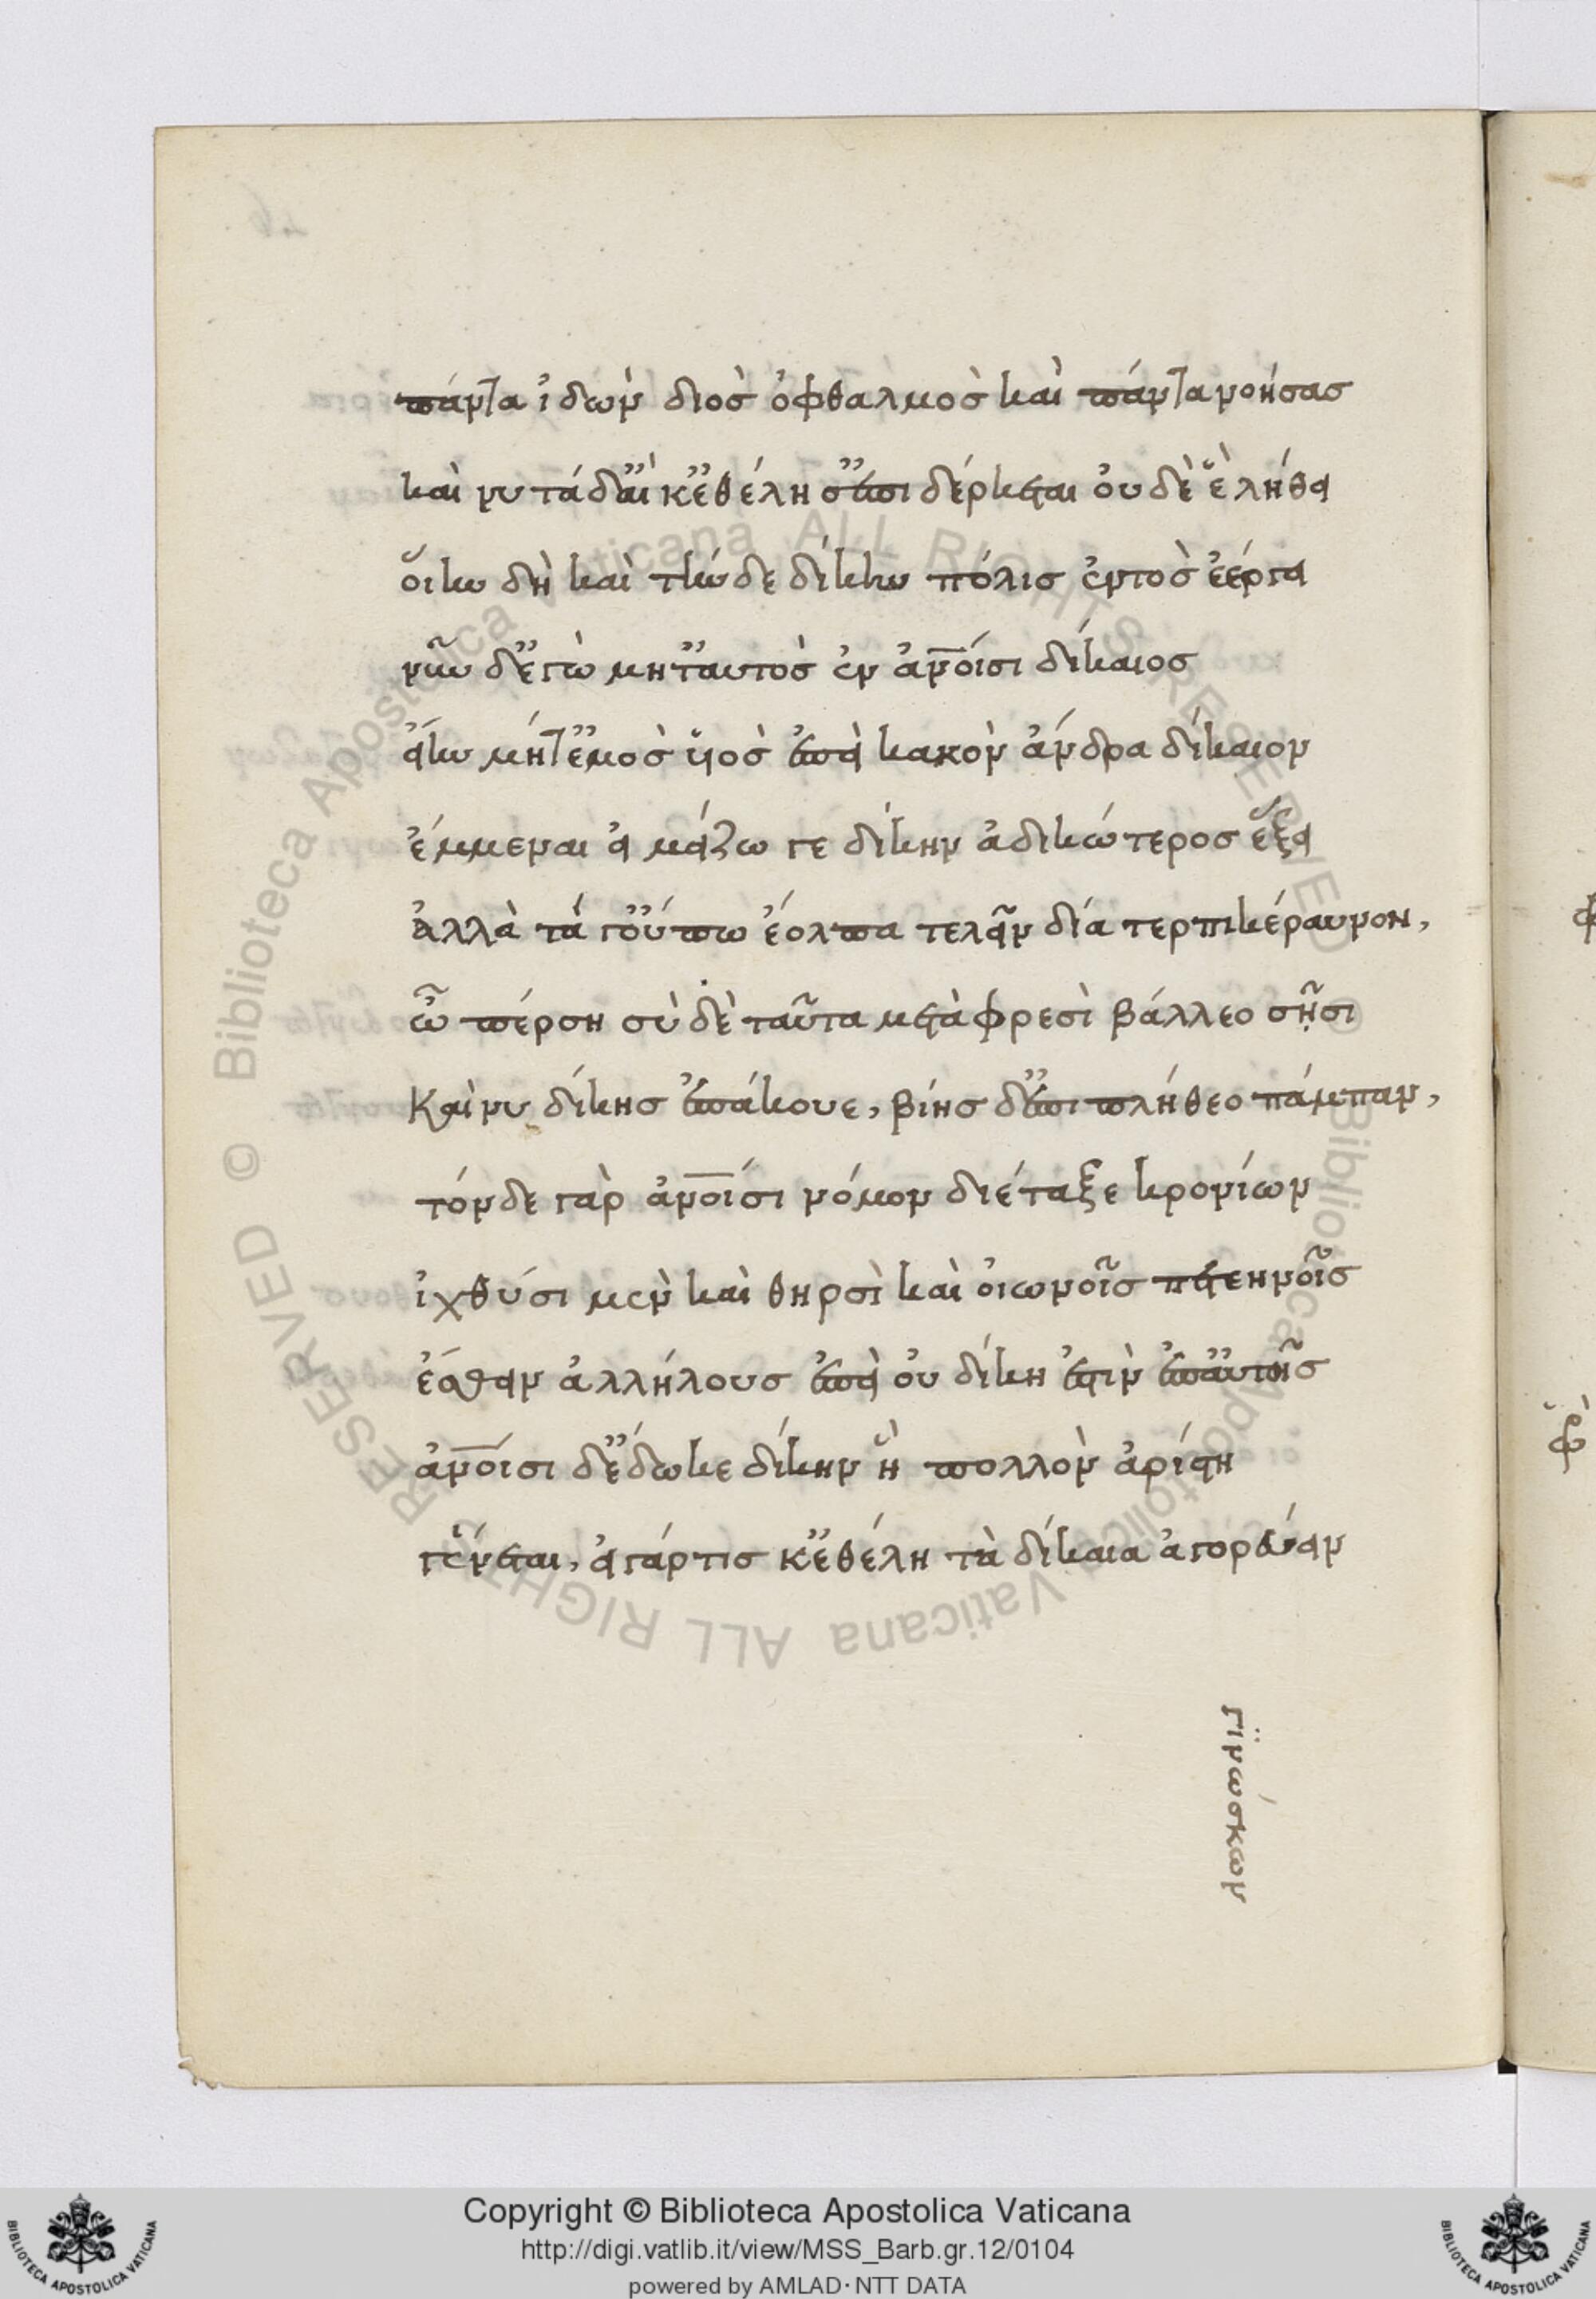 πάντα ἰδὼν διὸσ ὀφθαλμὸσ καὶ πάντα νοήσασ
καὶ νυ τάδ' αἴ κ' ἐθέλησ' ἐπιδέρκεται οὐδὲ ἓ λήθει
οἵην δὴ καὶ τήνδε δίκην πόλισ ἐντὸσ ἐέργει
νῦν δ' ἐγὼ μήτ' αὐτὸσ ἐν ἀνοίσι δίκαιοσ
εἴην μήτ' ἐμὸσ ὑιὸσ ἐπεὶ κακὸν ἄνδρα δίκαιον
ἔμμεναι εἰ μείζω γε δίκην ἀδικώτεροσ ἕξει
ἀλλὰ τά γ' οὔπω ἔολπα τελεῖν δία τερπικέραυνον,
ὦ πέρση σὺ δὲ ταῦτα μετὰ φρεσὶ βάλλεο σῇσι
Καί νυ δίκησ ἐπάκουε, βίησ δ' ἐπιλήθεο πάμπαν,
τόνδε γὰρ ἀνοίσι νόμον διέταξε κρονίων
ἰχθύσι μὲν καὶ θηρσὶ καὶ οἰωνοῖσ πετεηνοῖσ
ἔσθειν ἀλλήλουσ ἐπεὶ οὐ δίκη ἐστὶν ἐπ' αὐτοῖσ
ἀνοίσι δ' ἔδωκε δίκην ἣ πολλὸν ἀρίστη
γένεται, εἰ γάρ τισ κ' ἐθέλη τὰ δίκαια ἀγορεύειν
γινώσκων
Copyright © Biblioteca Apostolica Vaticana
http://digi.vatlib.it/view/MSS_Barb.gr.12/0104
powered by AMLAD·NTT DATA